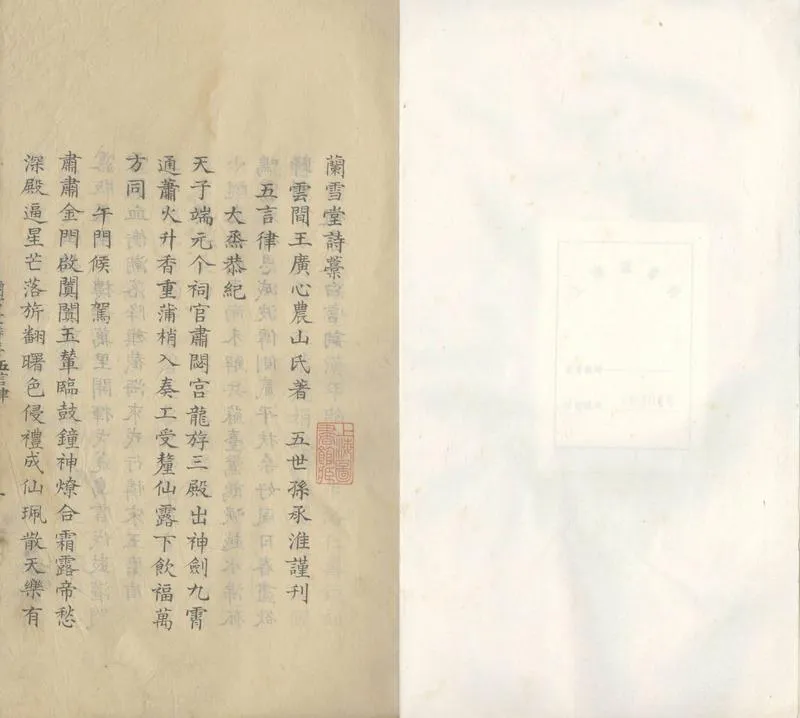 蘭雪堂詩藁
雲間王廣心農山氏著 五世孫承淮謹刊
五言律
大烝恭紀
天子端元个祠官肅閟宮龍旂三殿出神劍九霄
通蕭火升香重蒲梢入奏工受釐仙露下飲福萬
方同
午門候駕
肅肅金門啟闐闐玉輦臨鼓鐘神燎合霜露帝愁
深殿逼星芒落旂翻曙色侵禮成仙珮散天樂有
五言律
上海圖書館藏